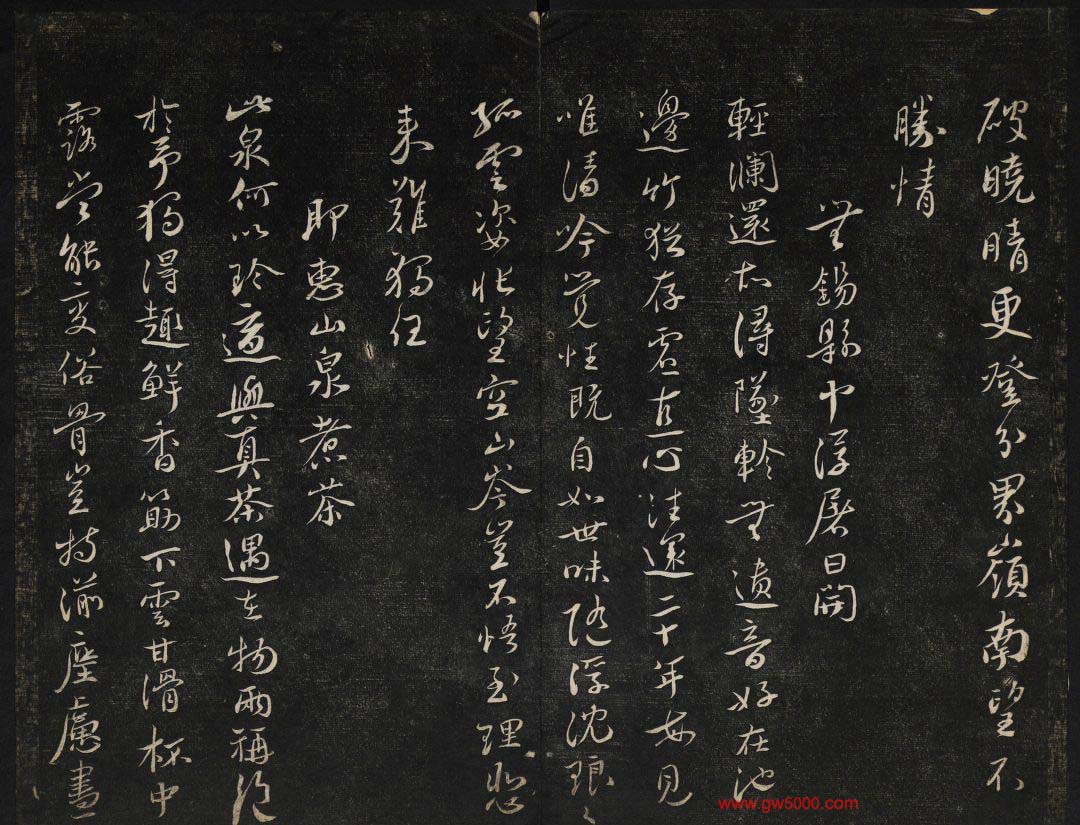 破曉晴更登分界嶺南望不
勝情
無錫縣中浮屠日開
輕瀾還亦得墜軫無遺音好在池
邊竹猶存虛直心往還二十年每見
唯清吟覺性既自如世味隨浮沈琅々
孤雲姿悵望空山岑豈不悟至理悲
來難獨任
即惠山泉煮茶
此泉何以珍適與真茶遇在物兩稱絕
於予獨得趣鮮香筯下雲甘滑杯中
露當能變俗骨豈特湔塵慮晝
www.gw5000.com